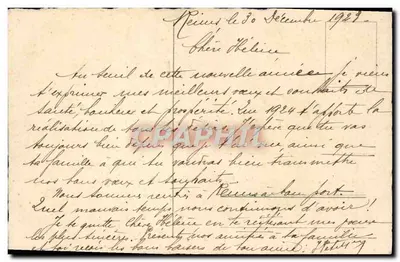 Reims le 30 Décembre 1923
Chère Hélène
Au seuil de cette nouvelle année je viens
t'exprimer mes meilleurs vœux et souhaits de
santé, bonheur et prospérité. Que 1924 t'apporte la
réalisation de que tu vas
toujours bien ainsi que
ta famille à qui tu voudras bien transmettre
nos bons vœux et souhaits.
Nous sommes rentrés à Reims à bon port
Quel mauvais temps nous continuons d'avoir !
Je te quitte Chère Hélène en te réitérant mes vœux
les plus sincères. amitiés à ta famille
et toi reçois les bons baisers de ton amie.
CPARPHIL